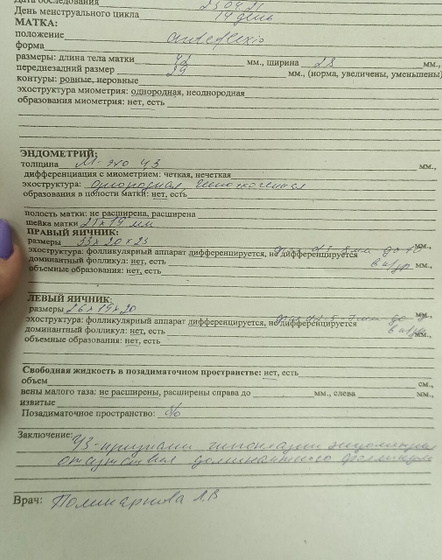 Дата обследования 23.04.21
День менструального цикла 14 день
МАТКА:
положение anteflexio
форма
размеры: длина тела матки мм., ширина 28 мм.,
переднезадний размер 29 мм., (норма, увеличены, уменьшены)
контуры: ровные, неровные
эхоструктура миометрия: однородная, неоднородная
образования миометрия: нет, есть
ЭНДОМЕТРИЙ:
толщина М-эхо мм.,
дифференциация с миометрием: четкая, нечеткая
эхоструктура: однородная, гипоэхогенная
образования в полости матки: нет, есть
полость матки: не расширена, расширена
шейка матки 21х19 мм
ПРАВЫЙ ЯИЧНИК:
размеры 33х20х23 мм.,
эхоструктура: фолликулярный аппарат дифференцируется, не дифференцируется
доминантный фолликул: нет, есть
объемные образования: нет, есть
ЛЕВЫЙ ЯИЧНИК
размеры 26х19х20 мм.,
эхоструктура: фолликулярный аппарат дифференцируется, не дифференцируется
доминантный фолликул: нет, есть
объемные образования: нет, есть
Свободная жидкость в позадиматочном пространстве: нет, есть
объем см.,
вены малого таза: не расширены, расширены справа до мм., слева мм.,
извитые
Позадиматочное пространство: б/о
Заключение: УЗ-признаки гипоплазии эндометрия
отсутствия доминантного фолликула
Врач: